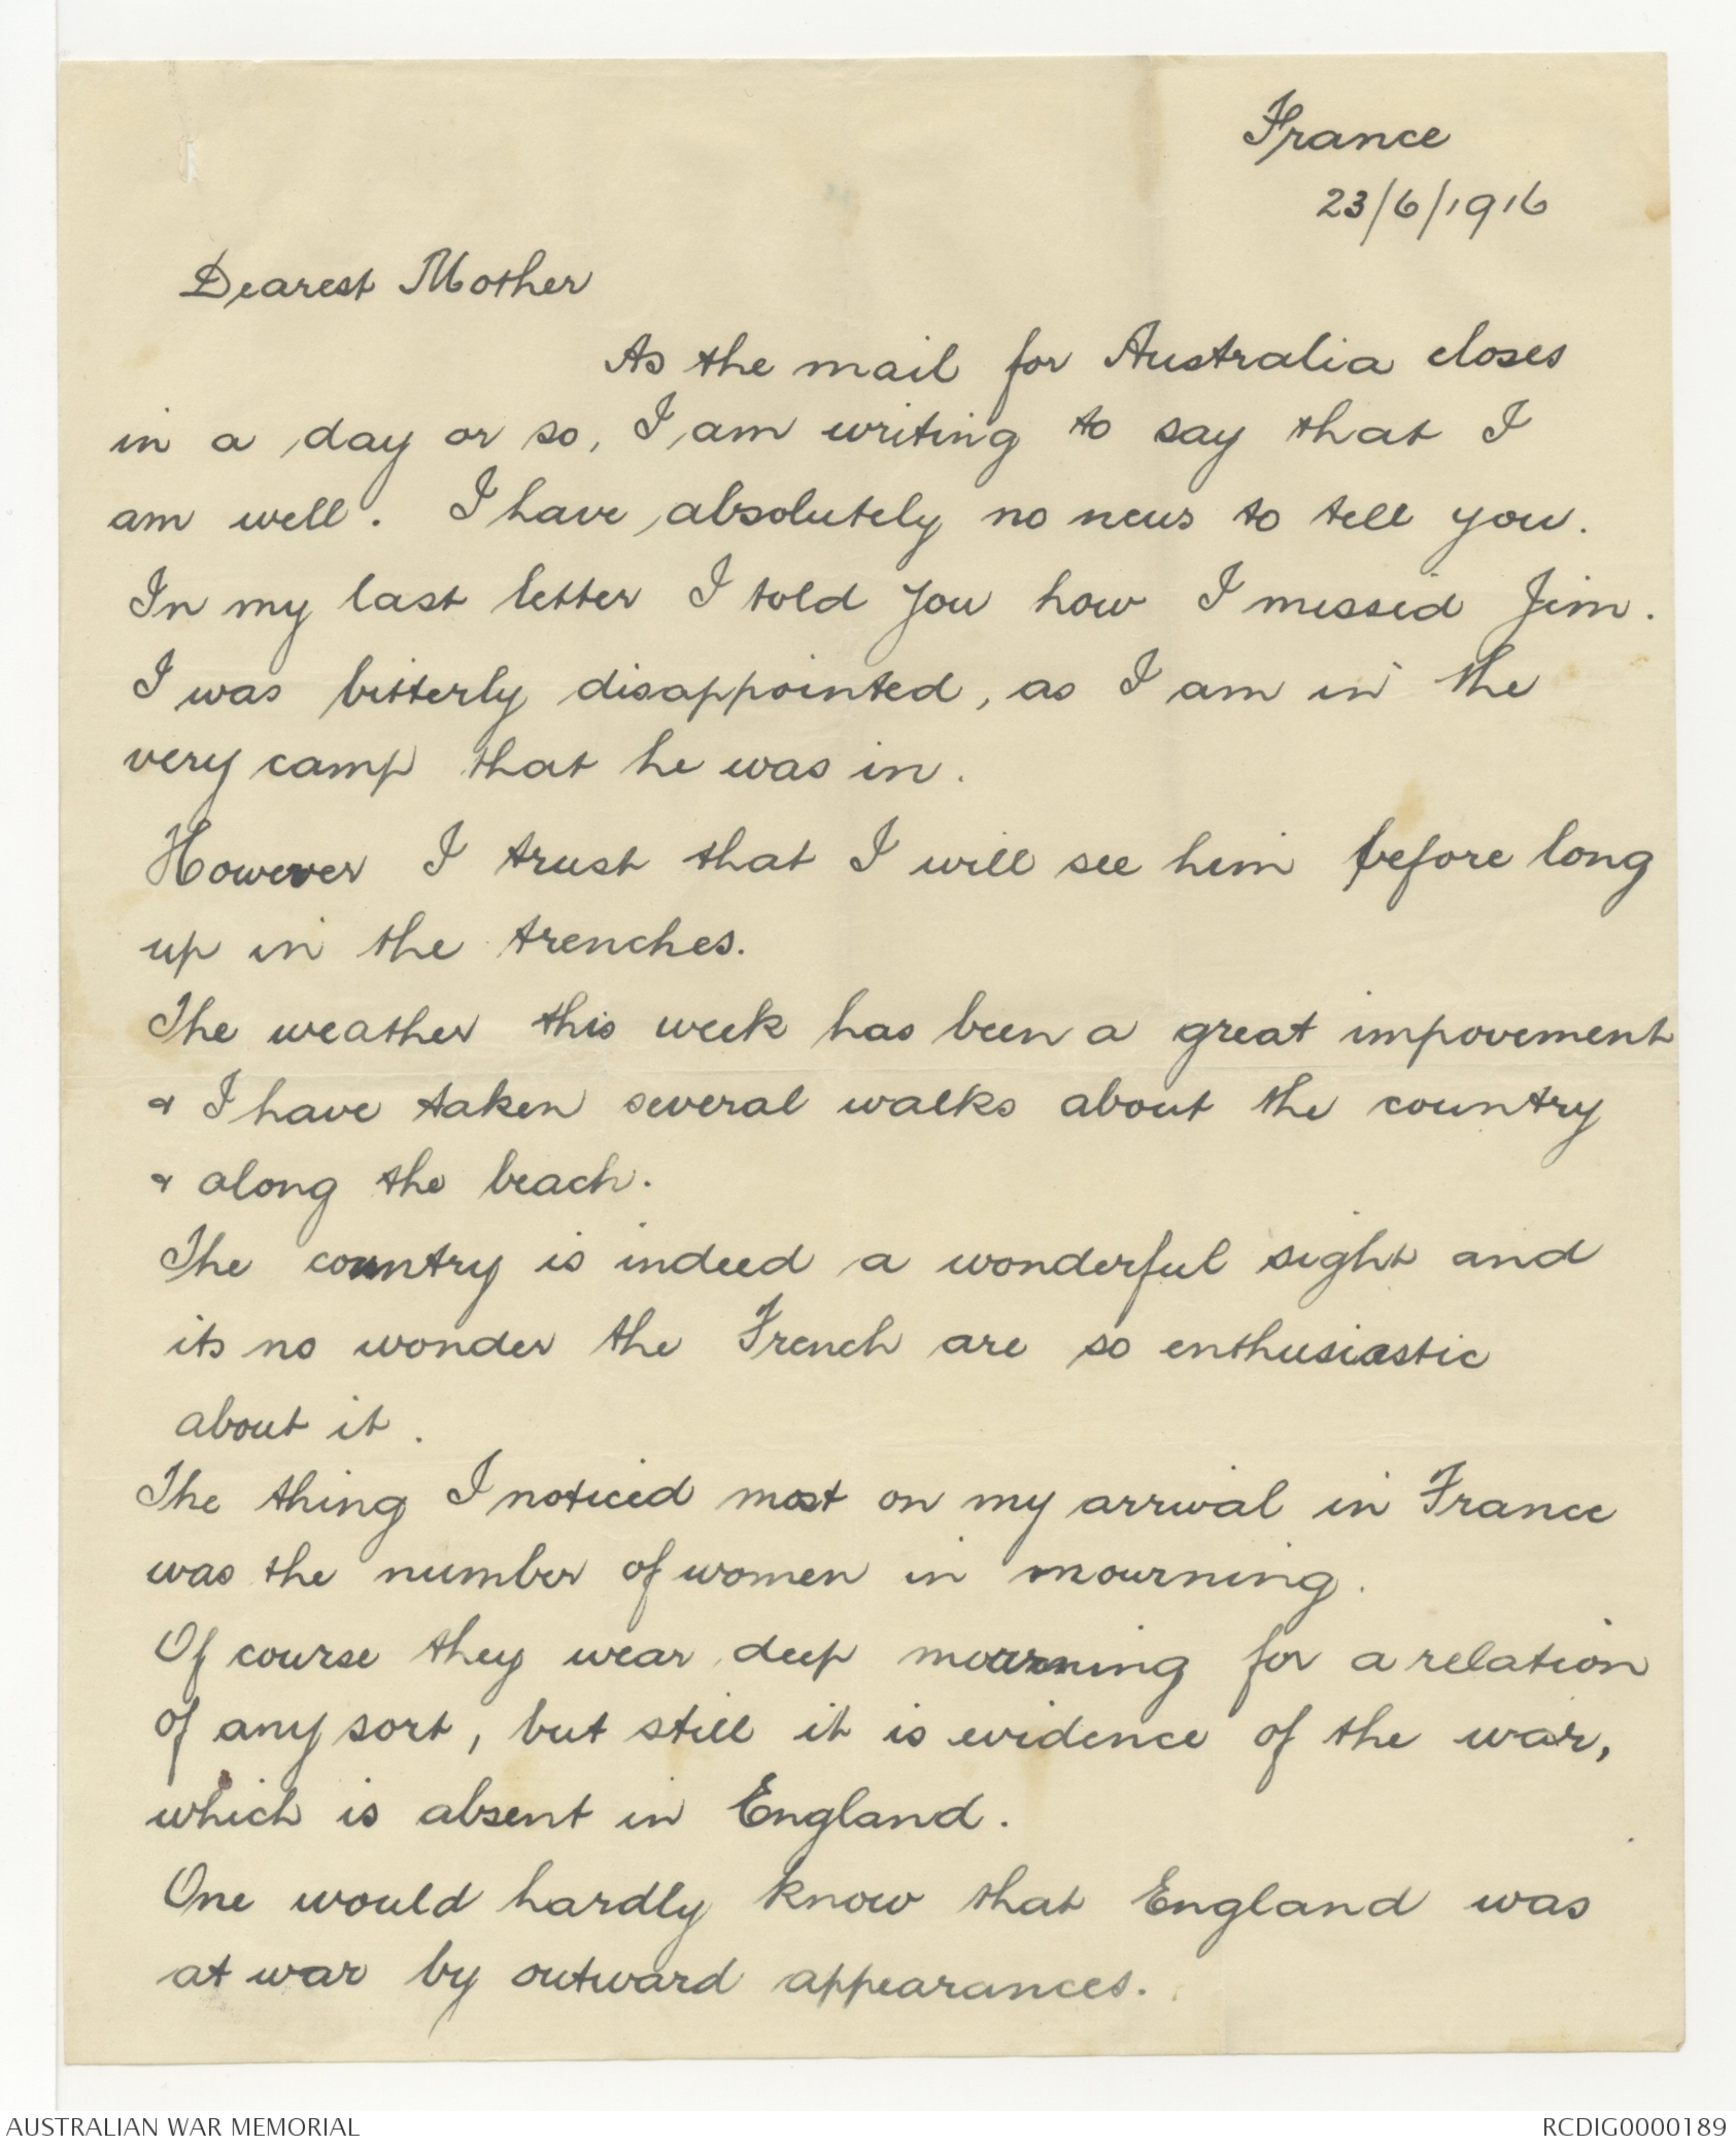 France
23/6/1916
Dearest Mother
As the mail for Australia closes
in a day or so, I am writing to say that I
am well. I have absolutely no news to tell you.
In my last letter I told you how I missed Jim.
I was bitterly disappointed, as I am in the
very camp that he was in.
However I trust that I will see him before long
up in the trenches.
The weather this week has been a great impovement
& I have taken several walks about the country
& along the beach.
The country is indeed a wonderful sight and
its no wonder the French are so enthusiastic
about it.
The thing I noticed most on my arrival in France
was the number of women in mourning.
Of course they wear deep mourning for a relation
of any sort, but still it is evidence of the war,
which is absent in England.
One would hardly know that England was
at war by outward appearances.
AUSTRALIAN WAR MEMORIAL
RCDIG0000189